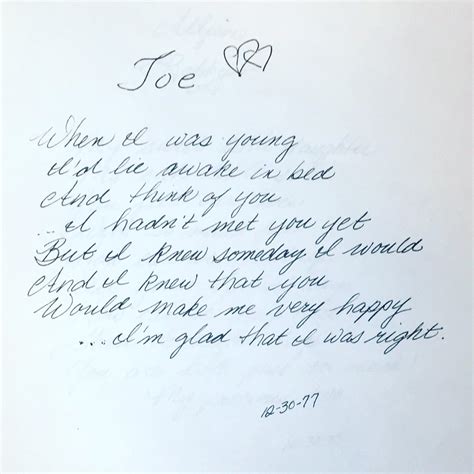 Joe
When I was young
I'd lie awake in bed
And think of you
...I hadn't met you yet
But I knew someday I would
And I knew that you
Would make me very happy
...I'm glad that I was right.
12-30-77